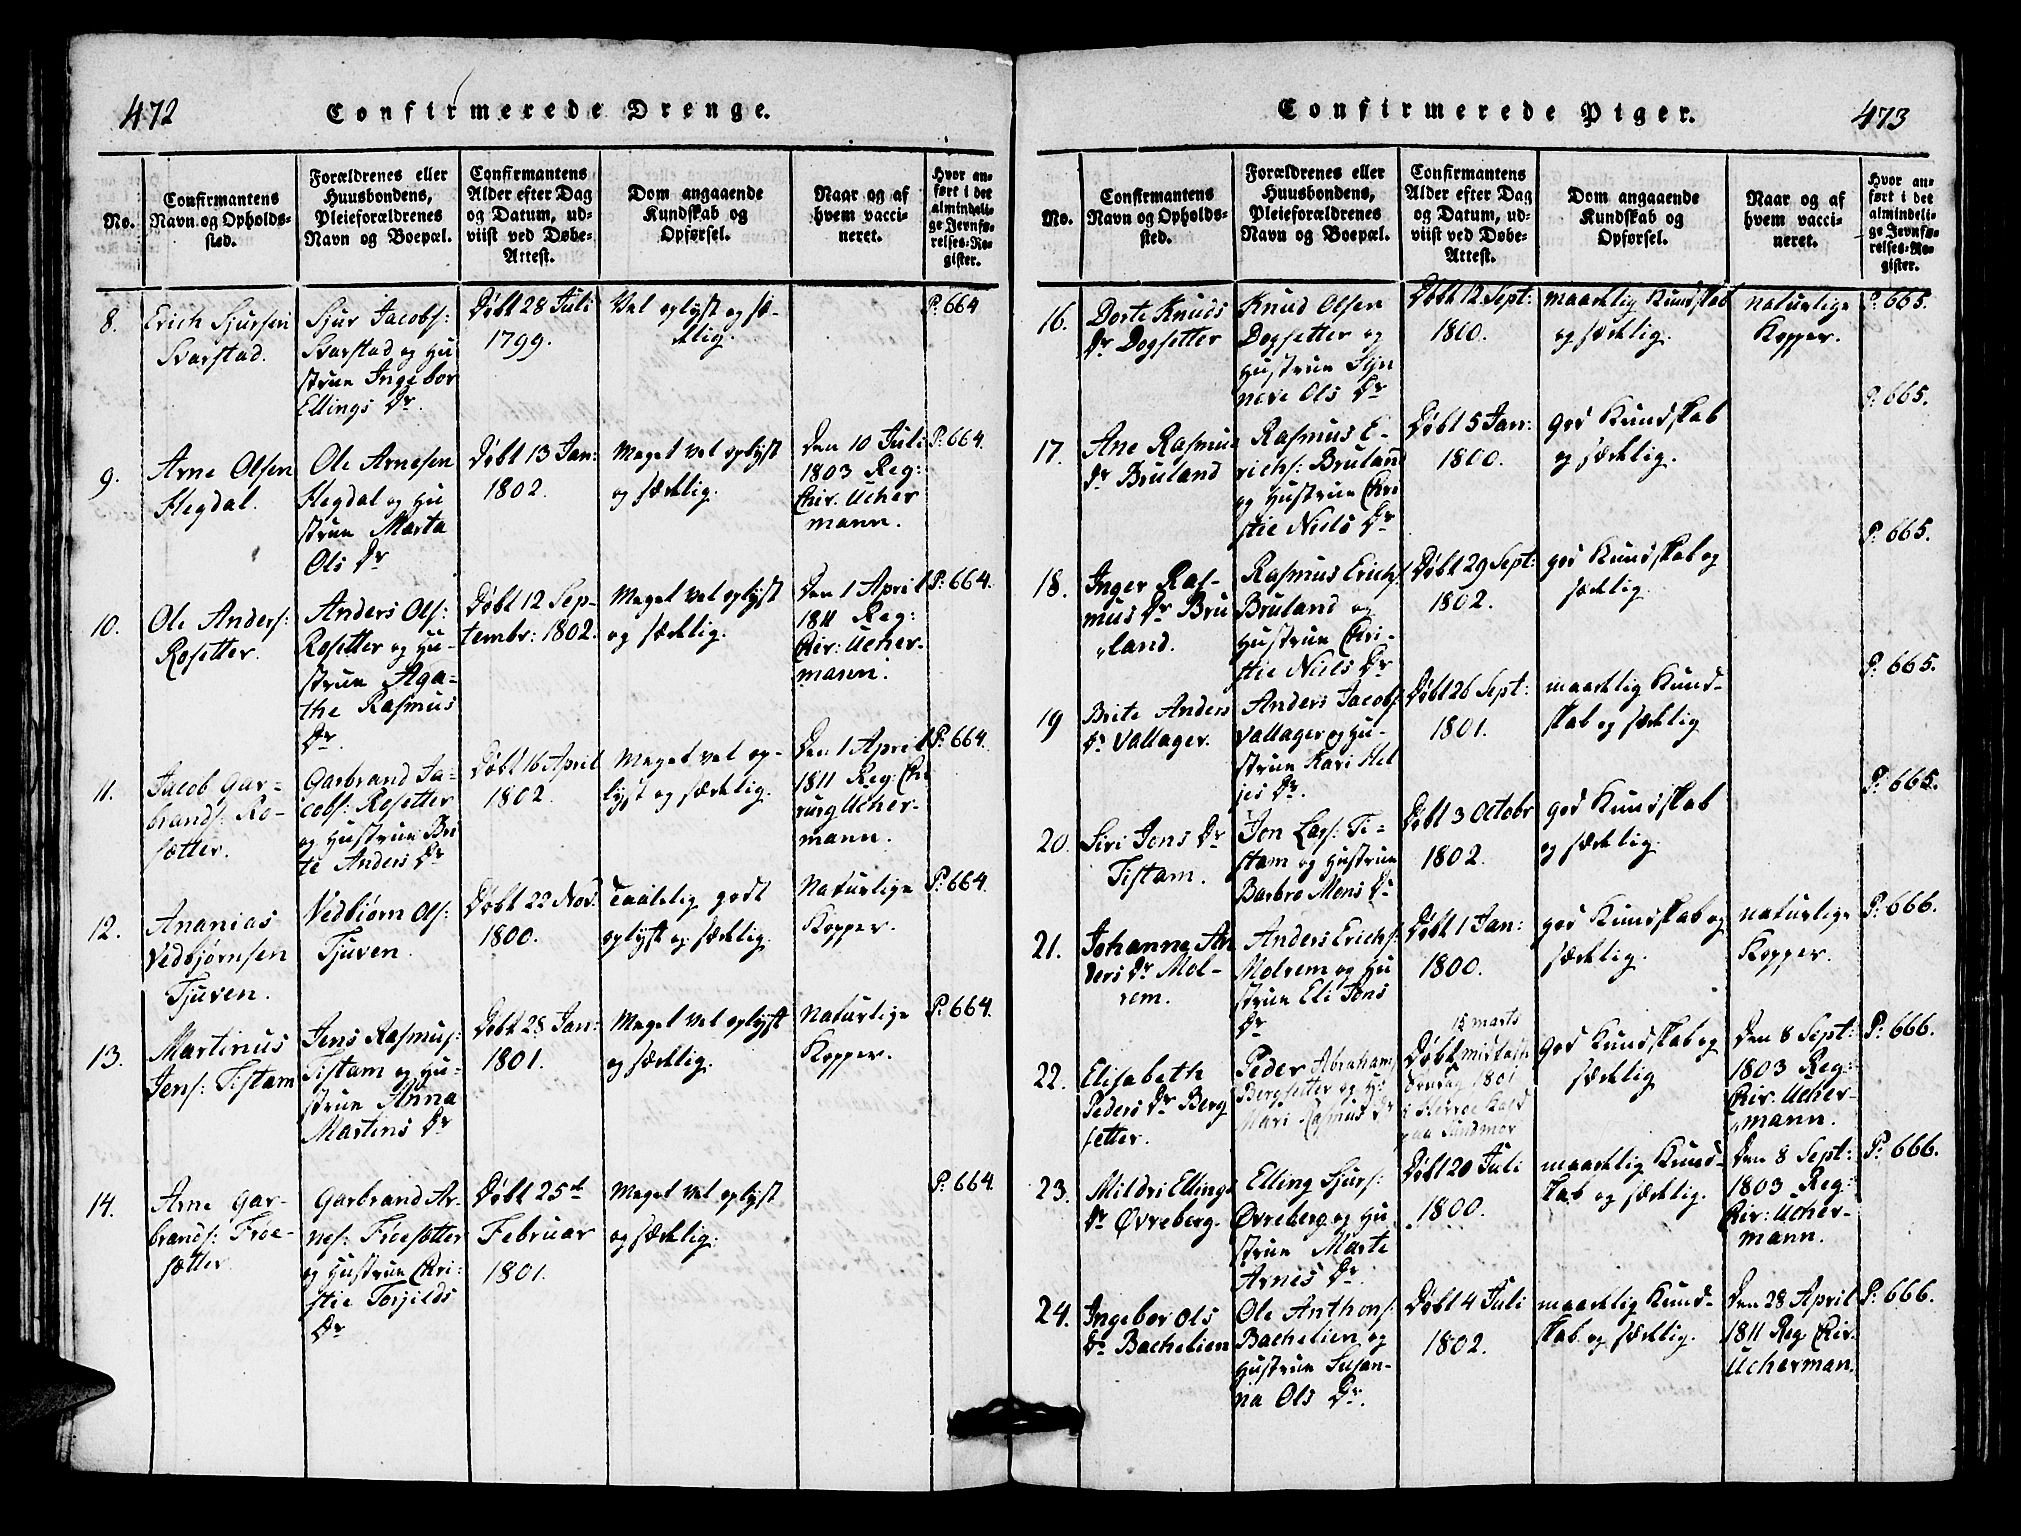 472
Confirmerede Drenge.
No.
Confirmantens
Navn og Opholds-
sted.
Forældrenes eller
Huusbondens,
Pleieforældrenes
Navn og Boepæl.
Confirmantens
Alder efter Dag
og Datum, ud-
viist ved Døbe-
Attest.
Dom angaaende
Kundskab og
Opførsel.
Naar og af
hvem vacci-
neret.
Hvor an-
ført i det
almindeli-
ge Jevnfø-
relses-Re-
gister.
8.
Erich Sjursen
Svarstad.
Sjur Jacobs:
Svarstad og Hu
strue Ingebor
Ellings Dr.
Døbt 28 Juli
1799.
Vel oplyst og sæ-
delig.
P: 664
9.
Arne Olsen
Hegdal.
Ole Arnesen
Hegdal og Hu
strue Marta
Ols Dr
Døbt 13 Jan:
1802.
Meget vel oplyst
og sædelig.
Den 10 Juli
1803 Reg:
Chir. Ucher
mann.
P: 664.
10.
Ole Anders:
Rosetter.
Anders Ols:
Rosetter og Hu-
strue Aga-
the Rasmus
Dr.
Døbt 12 Sep-
tembr: 1802.
Meget vel oplyst
og sædelig.
Den 1 April
1811 Reg:
Chir: Ucher-
mann.
P: 664.
11.
Jacob Gar-
brands: Ro-
sætter.
Garbrand Ja-
cobs: Rosetter
og Hustrue Bri
te Anders Dr
Døbt 16 April
1802.
Meget vel op-
lyst og sædelig.
Den 1 April
1811 Reg: Chi
rurg Ucher-
mann.
P: 664.
12.
Ananias
Vedbjørnsen
Tjuven.
Vedbiørn Ols:
Tjuven.
Døbt 22 Nov.
1800.
Taalelig godt
oplyst og sædelig.
Naturlige
Kopper.
P: 664.
13.
Martinus
Jens: Tistam
Jens Rasmus:
Tistam og Hu-
strue Anna
Martins Dr
Døbt 28 Jan:
1801.
Meget vel oplyst
og sædelig.
Naturlige
Kopper.
P: 664.
14.
Arne Gar-
brands: Frøe-
sætter.
Garbrand Ar-
nes: Frøesætter
og Hustrue Chri-
stie Torjilds
Dr
Døbt 25de
Februar
1801.
Meget vel oplyst
og sædelig.
P: 664.
Confirmerede Piger.
473
No.
Confirmantens
Navn og Opholds-
sted.
Forældrenes eller
Huusbondens,
Pleieforældrenes
Navn og Boepæl.
Confirmantens
Alder efter Dag
og Datum, ud-
viist ved Døbe-
Attest.
Dom angaaende
Kundskab og
Opførsel.
Naar og af
hvem vacci-
neret.
Hvor an-
ført i det
almindeli-
ge Jevnfø-
relses-Re-
gister.
16.
Dorte Knuds
Dr Dogsetter
Knud Olsen
Dogsetter og
Hustrue Syn
neve Ols Dr
Døbt 12 Sept:
1800.
maadelig Kundskab
og sædelig.
naturlige
Kopper.
P: 665.
17.
Ane Rasmus
Dr Bruland
Rasmus E-
richs: Bruland
og Hustrue Chri
stie Niels Dr
Døbt 5 Jan:
1800.
god Kundskab
og sædelig.
P: 665.
18.
Inger Ras-
mus Dr Bru
land.
Rasmus Erichs:
Bruland og
Hustrue Chri-
stie Niels Dr
Døbt 29 Sept:
1802.
god Kundskab og
sædelig.
P: 665.
19
Brite Anders
Dr Vallager.
Anders Jacobs
Vallager og Hu-
strue Kari Hel
jes Dr.
Døbt 26 Sept:
1801.
maadelig Kund-
skab og sædelig
P: 665.
20.
Siri Jons Dr
Tistam.
Jon Lass: Ti-
stam og Hustrue
Barbro Mons Dr
Døbt 3 Octobr
1802.
god Kundskab
og sædelig.
P: 665.
21.
Johanna An
ders Dr Mol-
rem.
Anders Erichs:
Molrem og Hu
strue Eli Jons
Dr
Døbt 1 Jan:
1800.
god Kundskab og
sædelig.
naturlige
Kopper.
P: 666.
22.
Elisabeth
Peders Dr Berg
setter.
Peder Abraham
Bergsetter og H:
Mari Rasmus Dr
15 marts
Døbt midfaste
Søndag 1801
i Herrøe Kald
paa Sundmør
god Kundskab og
sædelig
Den 8 Sept:
1803 Reg:
Chir. Ucher-
mann.
P: 666.
23.
Mildri Ellings
Dr Øvreberg.
Elling Sjurs:
Øvreberg og Hu
strue Marte
Arnes Dr
Døbt 20 Juli
1800.
maadelig Kund-
skab og sædelig.
Den 8 Sept:
1803 Reg:
Chir: Ucher-
mann.
P: 666.
24.
Ingebor Ols
Dr Bachelien
Ole Anthons:
Bachelien og
Hustrue Susan-
na Ols Dr.
Døbt 4 Juli
1802.
maadelig Kund-
skab og sædelig.
Den 28 April
1811 Reg Chir.
Ucherman.
P: 666.